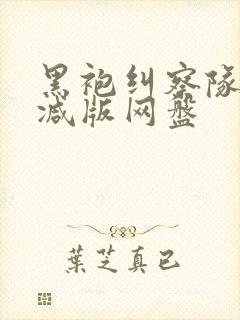 黑袍纠察隊
减版网盘
葉芝真已